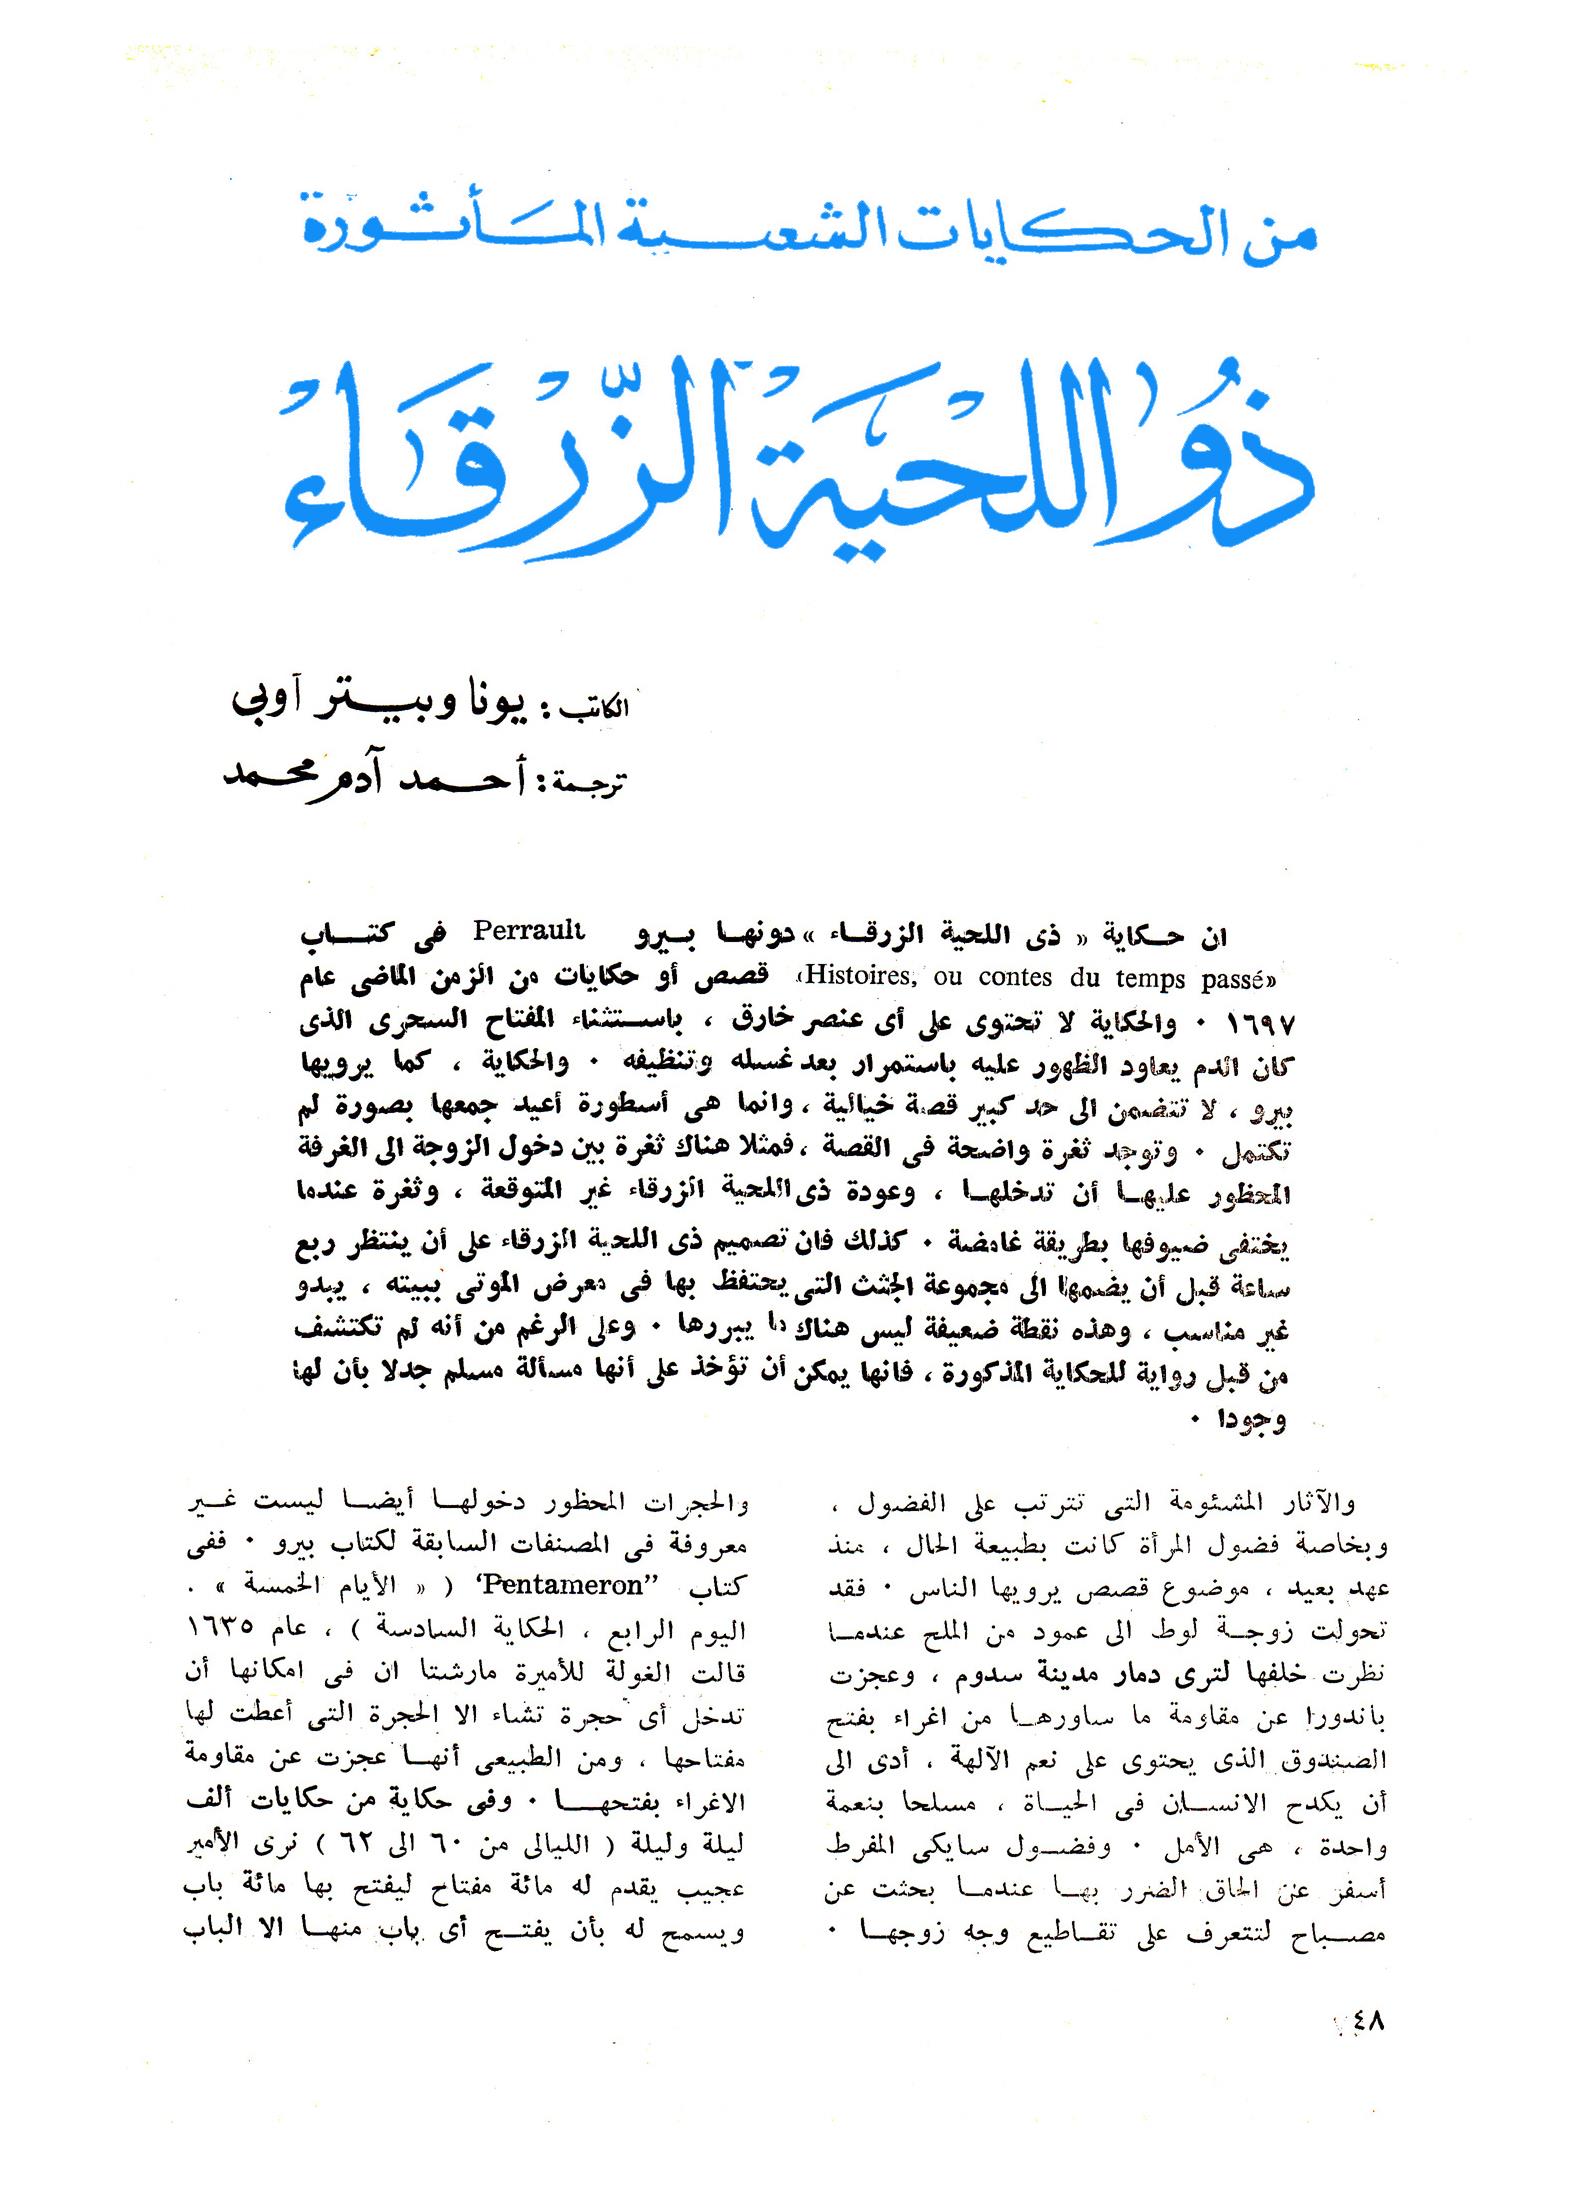 من الحكايات الشعبية المأثورة
ذُو اللحْيَة الزَّرْقَاءْ
الكاتب : يونا وبيتر أوبي
ترجمة : أحمد آدم محمد
ان حكاية « ذى اللحية الزرقاء » دونها بيرو Perrault فى كتاب
«Histoires, ou contes du temps passé» قصص أو حكايات من الزمن الماضى عام
١٦٩٧ ٠ والحكاية لا تحتوى على أى عنصر خارق ، باستثناء المفتاح السحرى الذى
كان الدم يعاود الظهور عليه باستمرار بعد غسله وتنظيفه ٠ والحكاية ، كما يرويها
بيرو ، لا تتضمن الى حد كبير قصة خيالية ، وانما هى أسطورة أعيد جمعها بصورة لم
تكتمل ٠ وتوجد ثغرة واضحة فى القصة ، فمثلا هناك ثغرة بين دخول الزوجة الى الغرفة
المحظور عليها أن تدخلها ، وعودة ذى اللحية الزرقاء غير المتوقعة ، وثغرة عندما
يختفى ضيوفها بطريقة غامضة ٠ كذلك فان تصميم ذى اللحية الزرقاء على أن ينتظر ربع
ساعة قبل أن يضمها الى مجموعة الجثث التى يحتفظ بها فى معرض الموتى ببيته ، يبدو
غير مناسب ، وهذه نقطة ضعيفة ليس هناك ما يبررها ٠ وعلى الرغم من أنه لم تكتشف
من قبل رواية للحكاية المذكورة ، فانها يمكن أن تؤخذ على أنها مسألة مسلم جدلا بأن لها
وجودا ٠
والآثار المشئومة التى تترتب على الفضول ،
وبخاصة فضول المرأة كانت بطبيعة الحال ، منذ
عهد بعيد ، موضوع قصص يرويها الناس ٠ فقد
تحولت زوجة لوط الى عمود من الملح عندما
نظرت خلفها لترى دمار مدينة سدوم ، وعجزت
باندورا عن مقاومة ما ساورها من اغراء بفتح
الصندوق الذى يحتوى على نعم الآلهة ، أدى الى
أن يكدح الانسان فى الحياة ، مسلحا بنعمة
واحدة ، هى الأمل ٠ وفضول سايكى المفرط
أسفر عن الحاق الضرر بها عندما بحثت عن
مصباح لتتعرف على تقاطيع وجه زوجها ٠
والحجرات المحظور دخولها أيضا ليست غير
معروفة فى المصنفات السابقة لكتاب بيرو ٠ ففى
كتاب ‘Pentameron” ( « الأيام الخمسة » .
اليوم الرابع ، الحكاية السادسة ) ، عام ١٦٣٥
قالت الغولة للأميرة مارشتا ان فى امكانها أن
تدخل أى حجرة تشاء الا الحجرة التى أعطت لها
مفتاحها ، ومن الطبيعى أنها عجزت عن مقاومة
الاغراء بفتحها ٠ وفى حكاية من حكايات ألف
ليلة وليلة ( الليالى من ٦٠ الى ٦٢ ) نرى الأمير
عجيب يقدم له مائة مفتاح ليفتح بها مائة باب
ويسمح له بأن يفتح أى باب منها الا الباب
٤٨